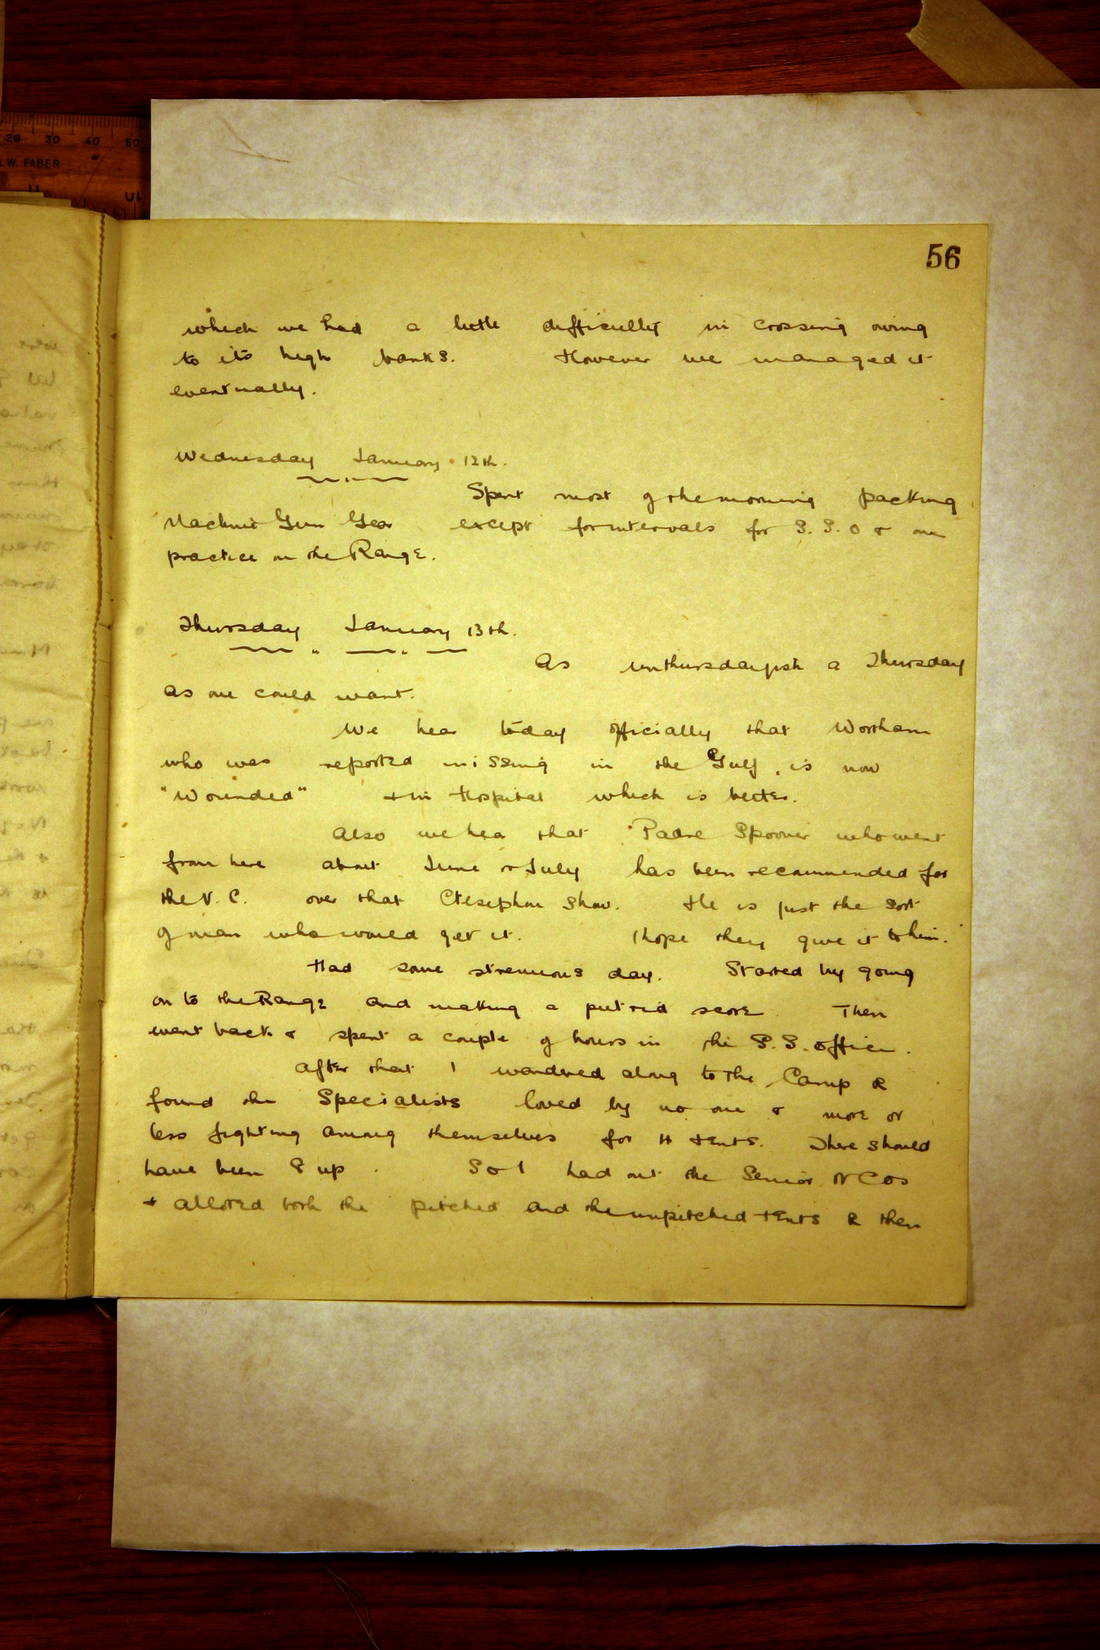 20 30 40 50
W. FABER
56
which we had a little difficulty in crossing owing
to its high banks. However we managed it
eventually.
Wednesday January 12th.
Spent most of the morning packing
Machine Gun Gear except for intervals for S.S.O & our
practice on the Range.
Thursday January 13th.
As unthursdayish a Thursday
as one could want.
We hear today officially that Wortham
who was reported missing in the Gulf, is now
"Wounded" & in Hospital which is better.
Also we hear that Padre Spooner who went
from here about June or July has been recommended for
the V.C. over that Ctesiphon show. He is just the sort
of man who would get it. I hope they give it to him.
Had some strenuous day. Started by going
on to the Range and making a putrid score. Then
went back & spent a couple of hours in the S.S. office.
After that I wandered along to the Camp &
found the Specialists loved by no one & more or
less fighting among themselves for 4 tents. There should
have been 8 up. So I had out the Senior NCOs
& alloted both the pitched and the unpitched tents & then